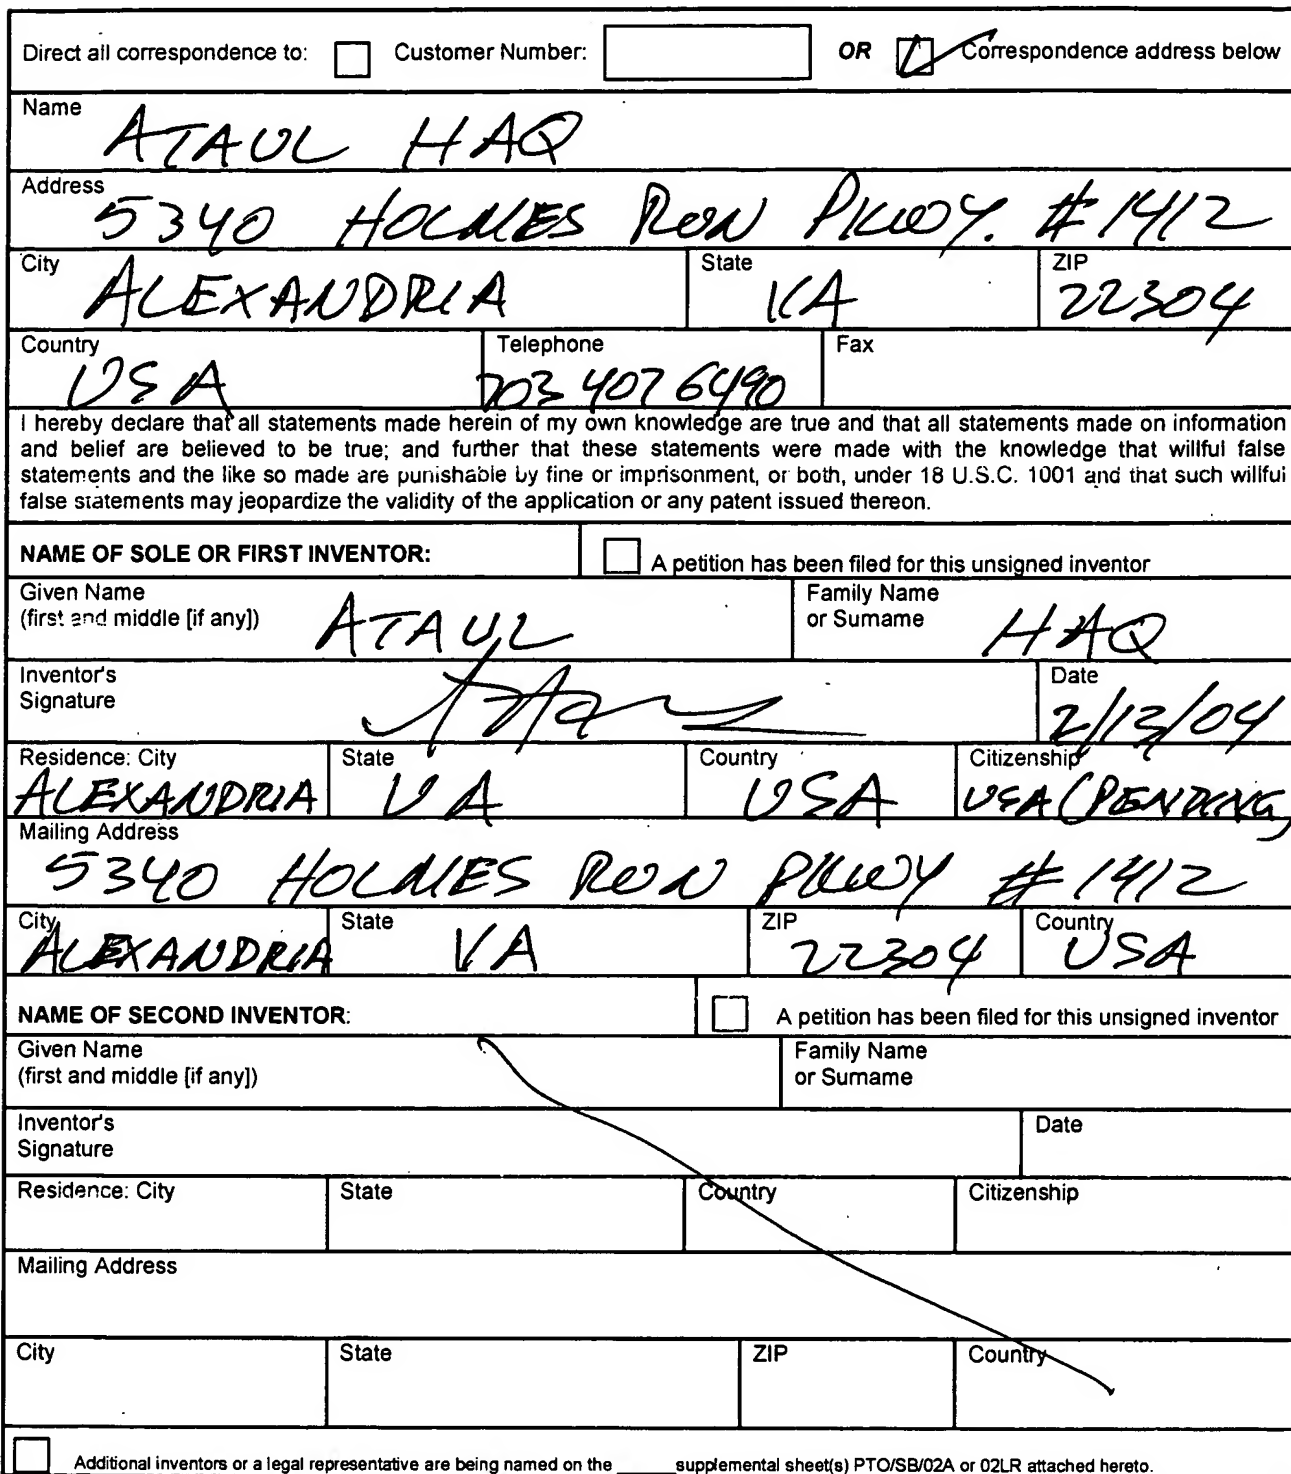 Direct all correspondence to: Customer Number: OR Correspondence address below
Name
ATAUL HAQ
Address
5340 HOLMES RUN PKWY. #1412
City State ZIP
ALEXANDRIA VA 22304
Country Telephone Fax
USA 703 407 6490
I hereby declare that all statements made herein of my own knowledge are true and that all statements made on information
and belief are believed to be true; and further that these statements were made with the knowledge that willful false
statements and the like so made are punishable by fine or imprisonment, or both, under 18 U.S.C. 1001 and that such willful
false statements may jeopardize the validity of the application or any patent issued thereon.
NAME OF SOLE OR FIRST INVENTOR: A petition has been filed for this unsigned inventor
Given Name Family Name
(first and middle [if any]) ATAUL or Surname HAQ
Inventor's Date
Signature 2/13/04
Residence: City State Country Citizenship
ALEXANDRIA VA USA USA (PENDING)
Mailing Address
5340 HOLMES RUN PKWY #1412
City State ZIP Country
ALEXANDRIA VA 22304 USA
NAME OF SECOND INVENTOR: A petition has been filed for this unsigned inventor
Given Name Family Name
(first and middle [if any]) or Surname
Inventor's Date
Signature
Residence: City State Country Citizenship
Mailing Address
City State ZIP Country
Additional inventors or a legal representative are being named on the _____ supplemental sheet(s) PTO/SB/02A or 02LR attached hereto.